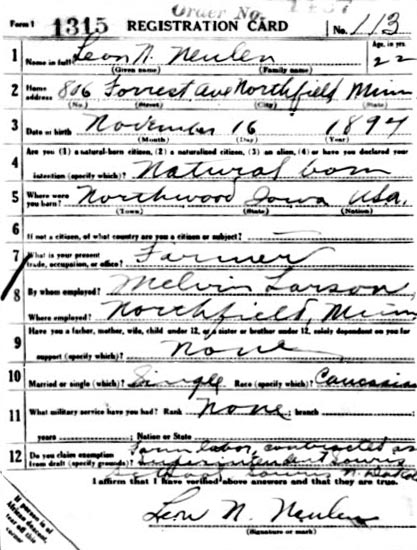 Order No. 1487
Form 1 1315 REGISTRATION CARD No. 113
1 Name in full Leon N. Neulen Age, in yrs. 22
(Given name) (Family name)
2 Home address 806 Forrest Ave Northfield Minn
(No.) (Street) (City) (State)
3 Date of birth November 16 1894
(Month) (Day) (Year)
Are you (1) a natural-born citizen, (2) a naturalized citizen, (3) an alien, (4) or have you declared your
4 intention (specify which)? Natural born
5 Where were you born? Northwood Iowa USA.
(Town) (State) (Nation)
6 If not a citizen, of what country are you a citizen or subject? —
7 What is your present trade, occupation, or office? Farmer
8 By whom employed? Melvin Larson
Where employed? Northfield, Minn
Have you a father, mother, wife, child under 12, or a sister or brother under 12, solely dependent on you for
9 support (specify which)? None
10 Married or single (which)? Single Race (specify which)? Caucasian
11 What military service have you had? Rank None ; branch
years ; Nation or State
12 Do you claim exemption from draft (specify grounds)? Farm labor, contracted as
Superintendent
I affirm that I have verified above answers and that they are true.
Leon N. Neulen
(Signature or mark)
If person is of African descent, tear off this corner